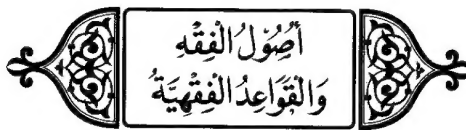 أُصُوْلُ الْفِقْهِ
وَالْقَوَاعِدُ الْفِقْهِيَّةُ